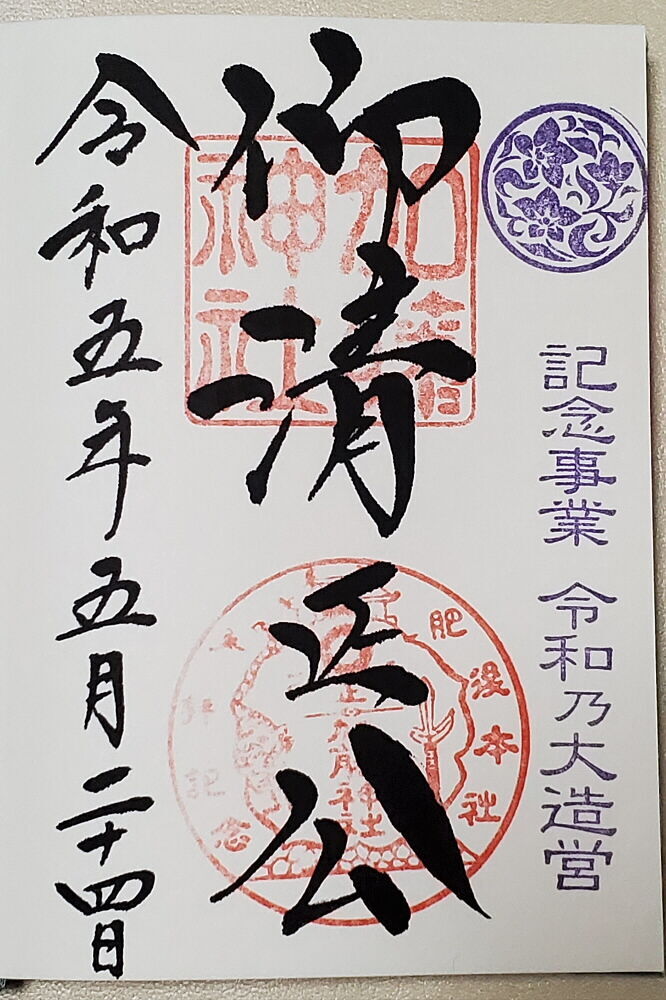 記念事業 令和乃大造営
仰清正公
加藤
神社
肥後本社
加藤神社
参拝記念
令和五年五月二十四日